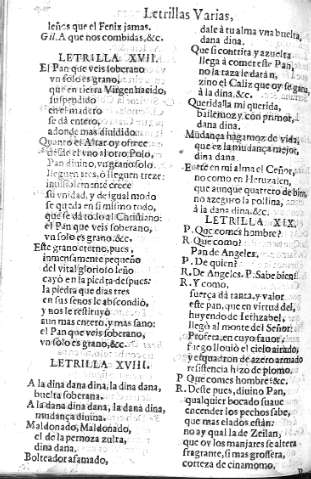 Letrillas Varias,
leños que el Fenix jamas.
Gil. A que nos combidas, &c.
LETRILLA XVII.
El Pan que veis soberano
vn solo es grano,
que en tierra Virgen nacido,
suspendido
en el madero
se dà entero,
adonde mas diuidido.
Quanto el Altar oy ofrece
desde el vno al otro Polo,
Pan diuino, vn grano solo
lleguen tres, ò lleguen treze
inuisiblemente crece
su vnidad, y de igual modo
se queda en si mismo todo,
que se dà todo al Christiano:
el Pan que veis soberano,
vn solo es grano, &c.
Este grano eterno, pues,
inmensamente pequeño
del vital glorioso leño
cayò en la piedra despues:
la piedra que dias tres
en sus senos le abscondiò,
y nos le restituyò
aun mas entero, y mas sano:
el Pan que veis soberano,
vn solo es grano, &c.
LETRILLA XVIII.
A la dina dana dina, la dina dana,
buelta soberana.
A la dana dina dana, la dana dina,
mudança diuina.
Maldonado, Maldonado,
el de la pernoza zulta,
dina dana.
Bolteador afamado,
dale à tu alma vna buelta,
dana dina.
Que si contrita y azuelta
llega à comer este Pan,
no la raza le darán,
zino el Caliz que oy se gana,
à la dina. &c.
Queridalla mi querida,
bailemoz, y con primor,
dana dina.
Mudança hagamoz de vida,
que ez la mudança mejor,
dina dana.
Entre en mi alma el Señor,
no como en Heruzalen,
que aunque quatrero de bien,
no azeguro la pollina,
à la dana dina. &c.
LETRILLA XIX.
P. Que comes hombre?
R. Que como?
Pan de Angeles.
P. De quien?
R. De Angeles. P. Sabe bien?
R. Y como.
fuerça dà tanta, y valor
este pan, que en virtud del,
huyendo de Iethzabel,
llegò al monte del Señor:
Profeta, en cuyo fauor,
fuego llouiò el cielo airado,
y esquadron de azero armado
resistencia hizo de plomo.
P Que comes hombre? &c.
R. Deste pues, diuino Pan,
qualquier bocado suaue
encender los pechos sabe,
que mas elados están:
no ay qual la de Zeilan,
que oy los manjares se altera
fragrante, si mas grossera,
corteza de cinamomo.